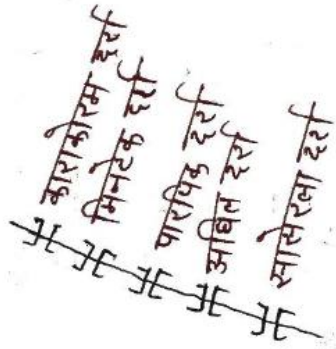 काराकोरम दर्रा
मिनटेक दर्रा
पारपिक दर्रा
अघिल दर्रा
सासरला दर्रा